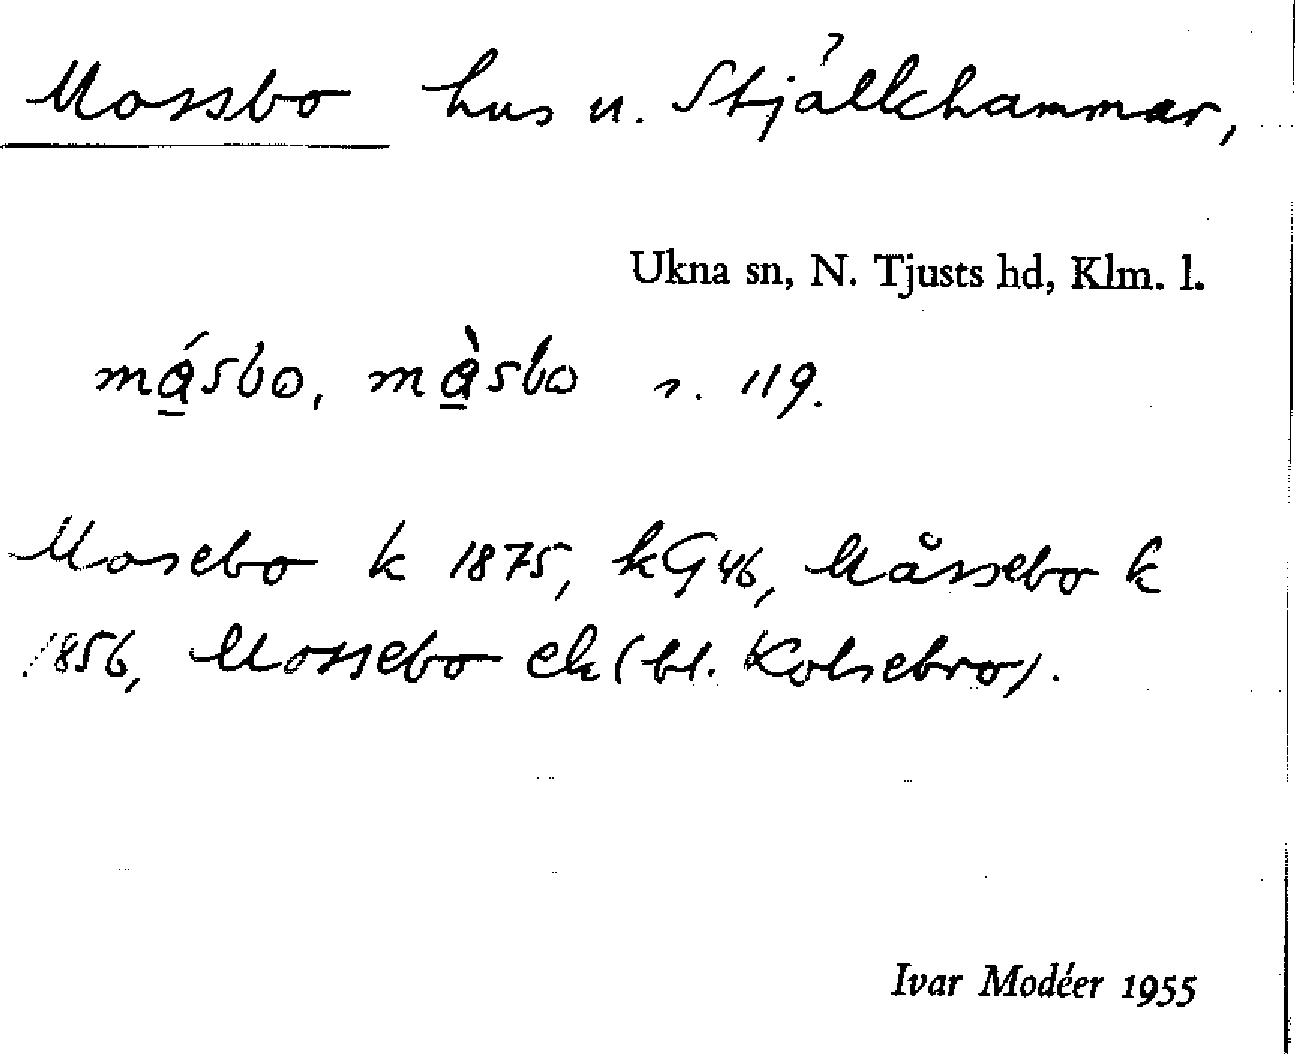 Mossbo hus u. Stjälkhammar,
Ukna sn, N. Tjusts hd, Klm. l.
má̱sbo, mà̱sbo s. 119.
Mosebo k 1875, kG 46, Måssebo k
1856, Mossebo ek (bl. Kolsebro).
Ivar Modéer 1955